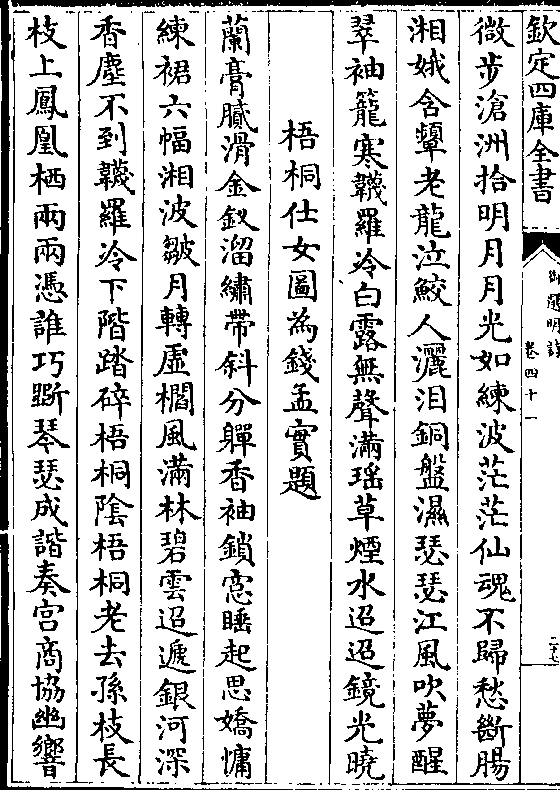 欽定四庫全書
御選明詩
卷四十一
微步滄洲拾明月月光如練波茫茫仙魂不歸愁斷腸
湘娥含顰老龍泣鮫人灑泪銅盤濕瑟瑟江風吹夢醒
翠袖籠寒韈羅冷白露無聲滿瑶草煙水迢迢鏡光曉
梧桐仕女圖為錢孟實題
蘭膏膩滑金釵溜繡帶斜分軃香袖鎖窓睡起思嬌慵
練裙六幅湘波皺月轉虛櫩風滿林碧雲迢遞銀河深
香塵不到韈羅冷下階踏碎梧桐陰梧桐老去孫枝長
枝上鳳凰栖兩兩憑誰巧斲琴瑟成諧奏宫商協幽響